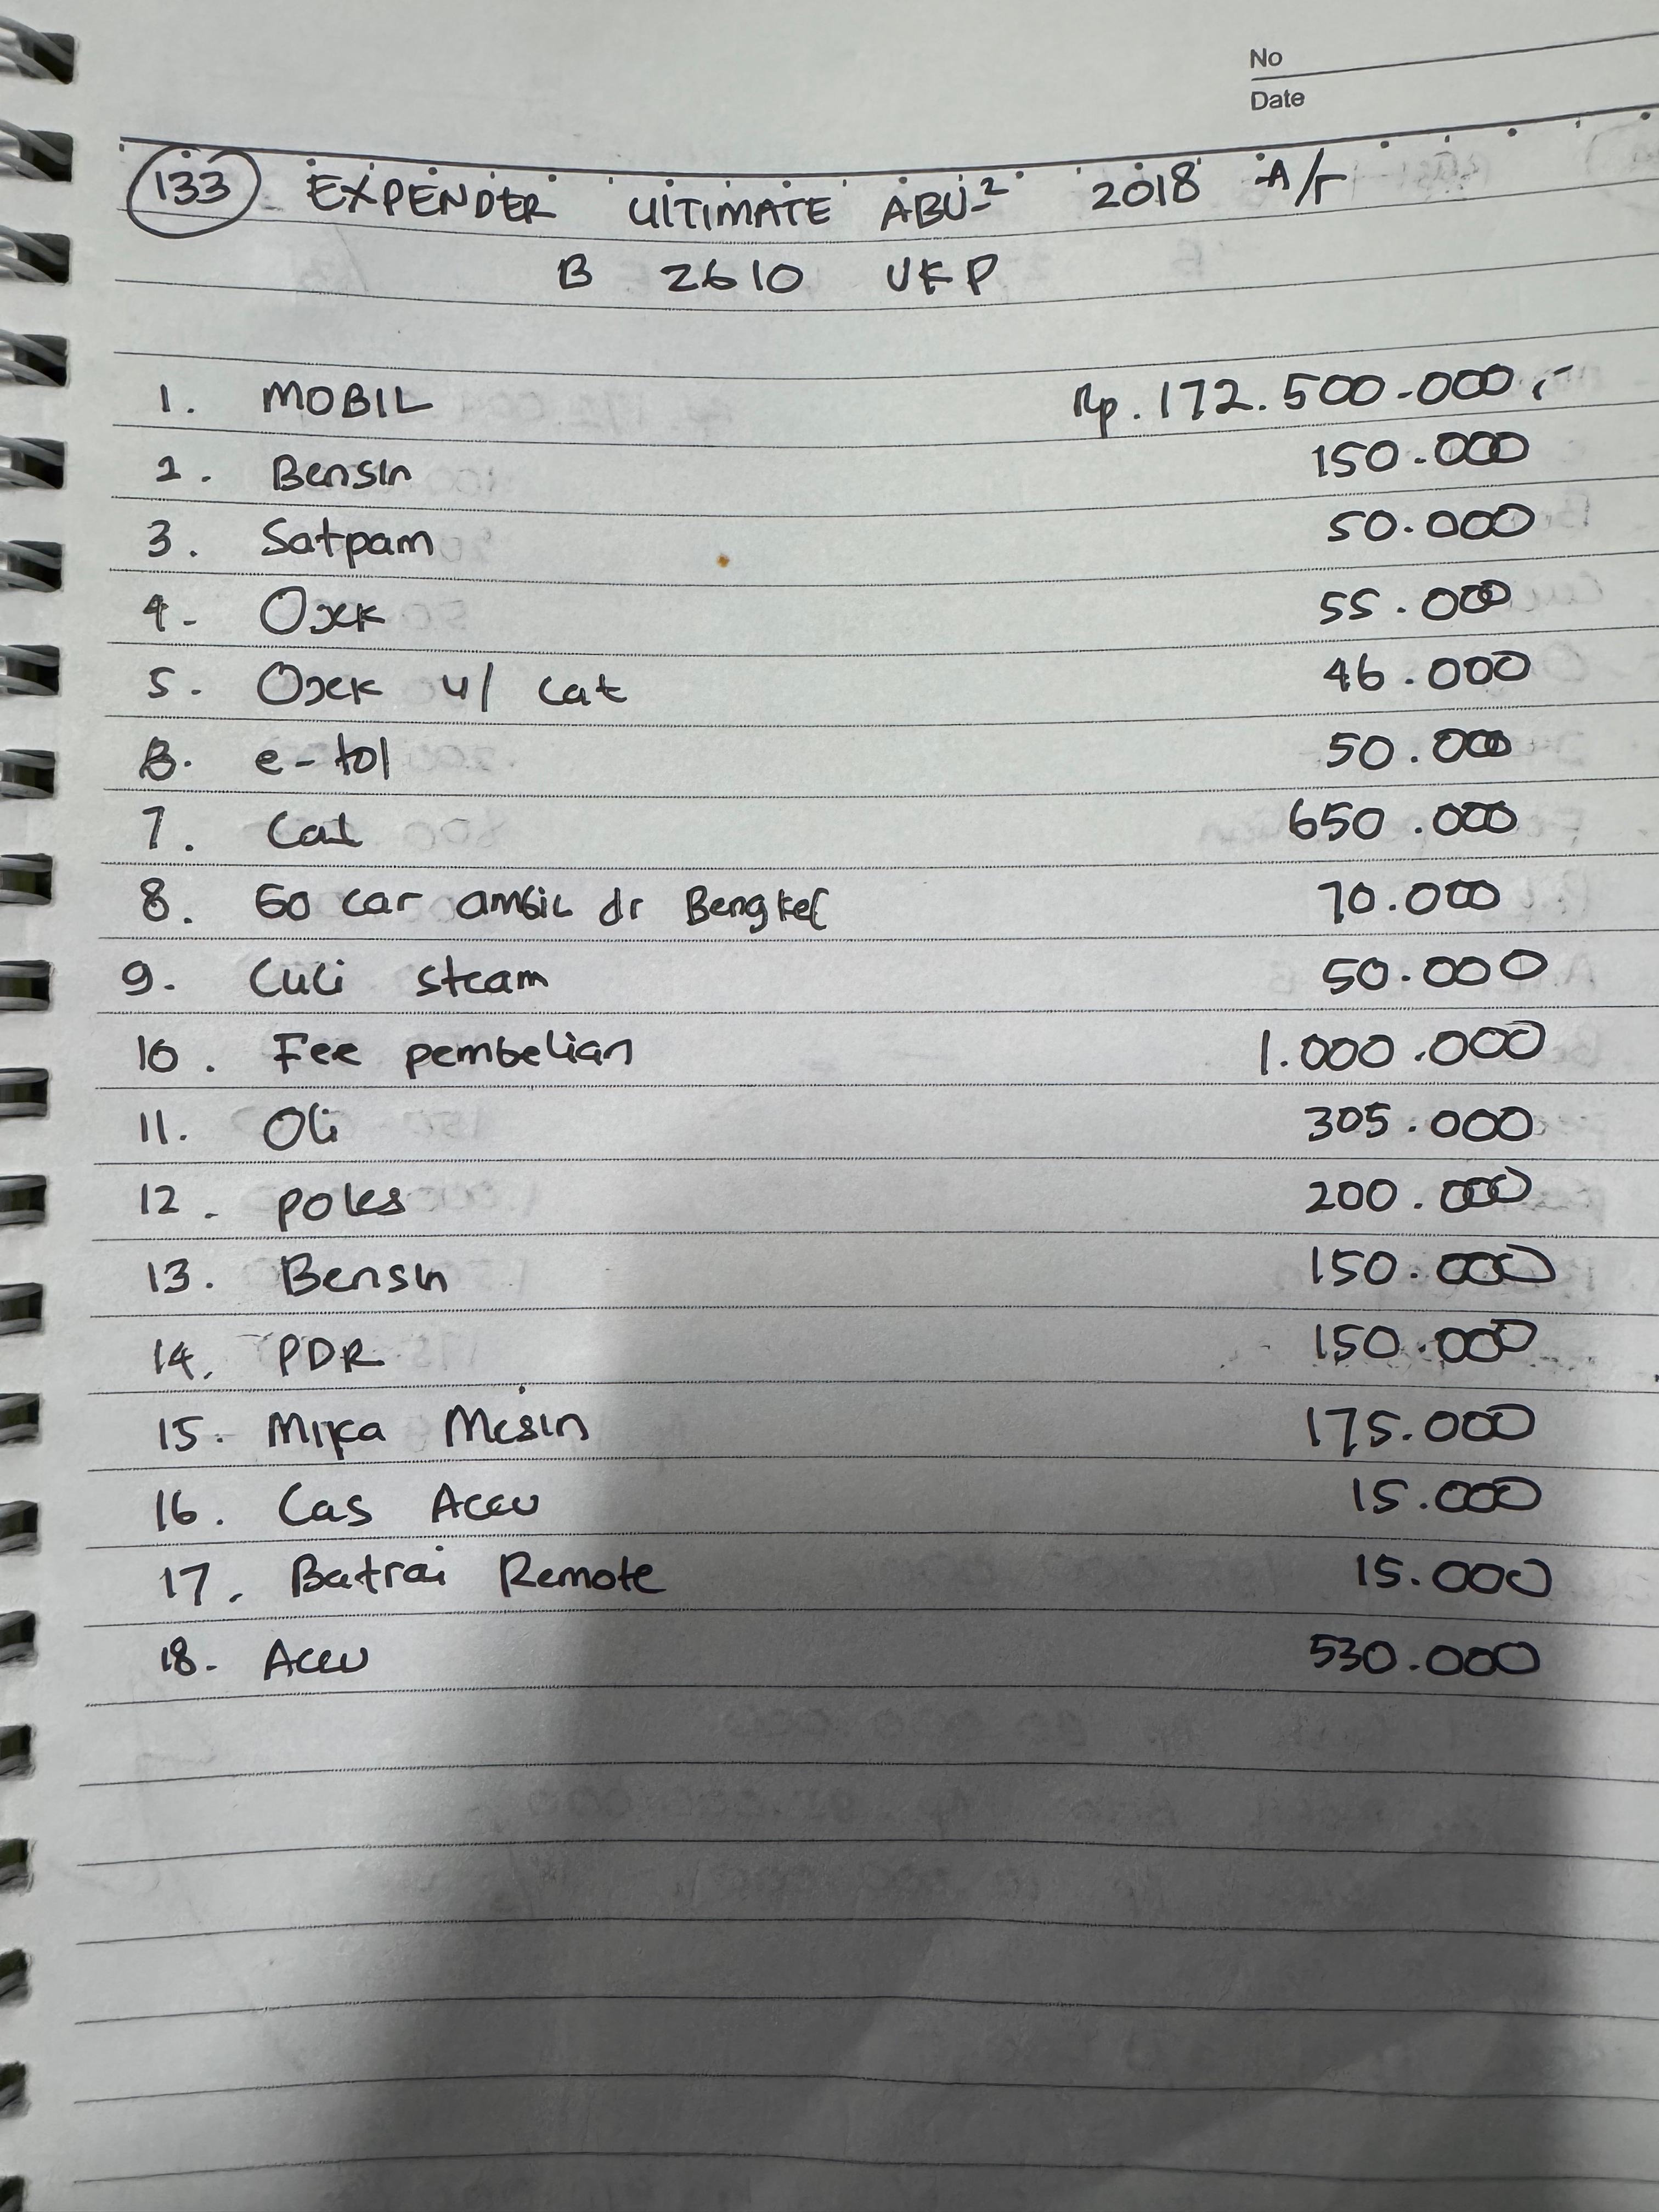 No
Date
133 EXPENDER ULTIMATE ABU-² 2018 A/T
B 2610 UKP
1. MOBIL Rp. 172.500.000,-
2. Bensin 150.000
3. Satpam 50.000
4. Ojek 55.000
5. Ojek u/ cat 46.000
6. e-tol 50.000
7. Cat 650.000
8. Go car ambil dr Bengkel 70.000
9. Cuci steam 50.000
10. Fee pembelian 1.000.000
11. Oli 305.000
12. poles 200.000
13. Bensin 150.000
14. PDR 150.000
15. Mika Mesin 175.000
16. Cas Accu 15.000
17. Batrai Remote 15.000
18. Accu 530.000